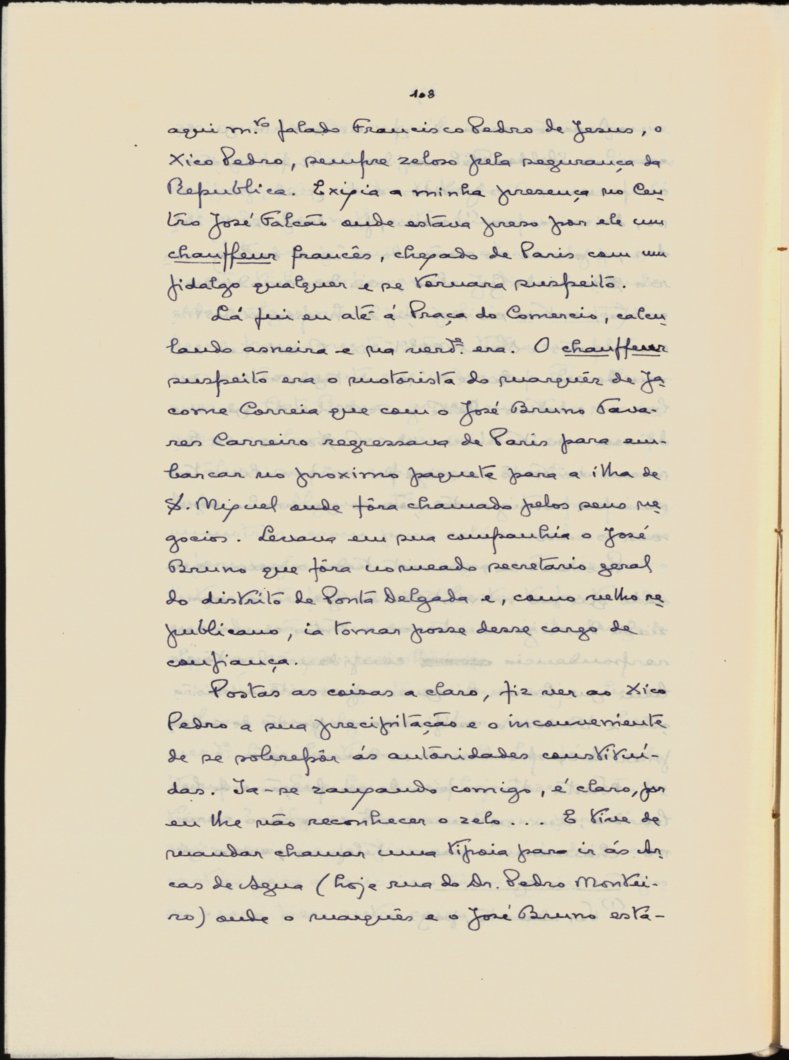 108
aqui m.to falado Francisco Pedro de Jesus, o
Xico Pedro, sempre zeloso pela segurança da
Republica. Exigia a minha presença no Cen-
tro José Falcão onde estava preso por ele um
chauffeur francês, chegado de Paris com um
fidalgo qualquer e se tornara suspeito.
Lá fui eu até á Praça do Comercio, calcu-
lando asneira e na verd.e era. O chauffeur
suspeito era o motorista do marquês de Ja-
come Correia que com o José Bruno Tava-
res Carreiro regressava de Paris para em-
barcar no proximo paquete para a ilha de
S. Miguel onde fôra chamado pelos seus ne-
gocios. Levava em sua companhia o José
Bruno que fôra nomeado secretario geral
do distrito de Ponta Delgada e, como velho re-
publicano, ia tomar posse desse cargo de
confiança.
Postas as coisas a claro, fiz ver ao Xico
Pedro a sua precipitação e o inconveniente
de se sobrepôr ás autoridades constitui-
das. Ia-se zangando comigo, é claro, por
eu lhe não reconhecer o zelo... E tive de
mandar chamar uma tipoia para ir ás Ar-
cas de Agua (hoje rua do Dr. Pedro Montei-
ro) onde o marquês e o José Bruno esta-